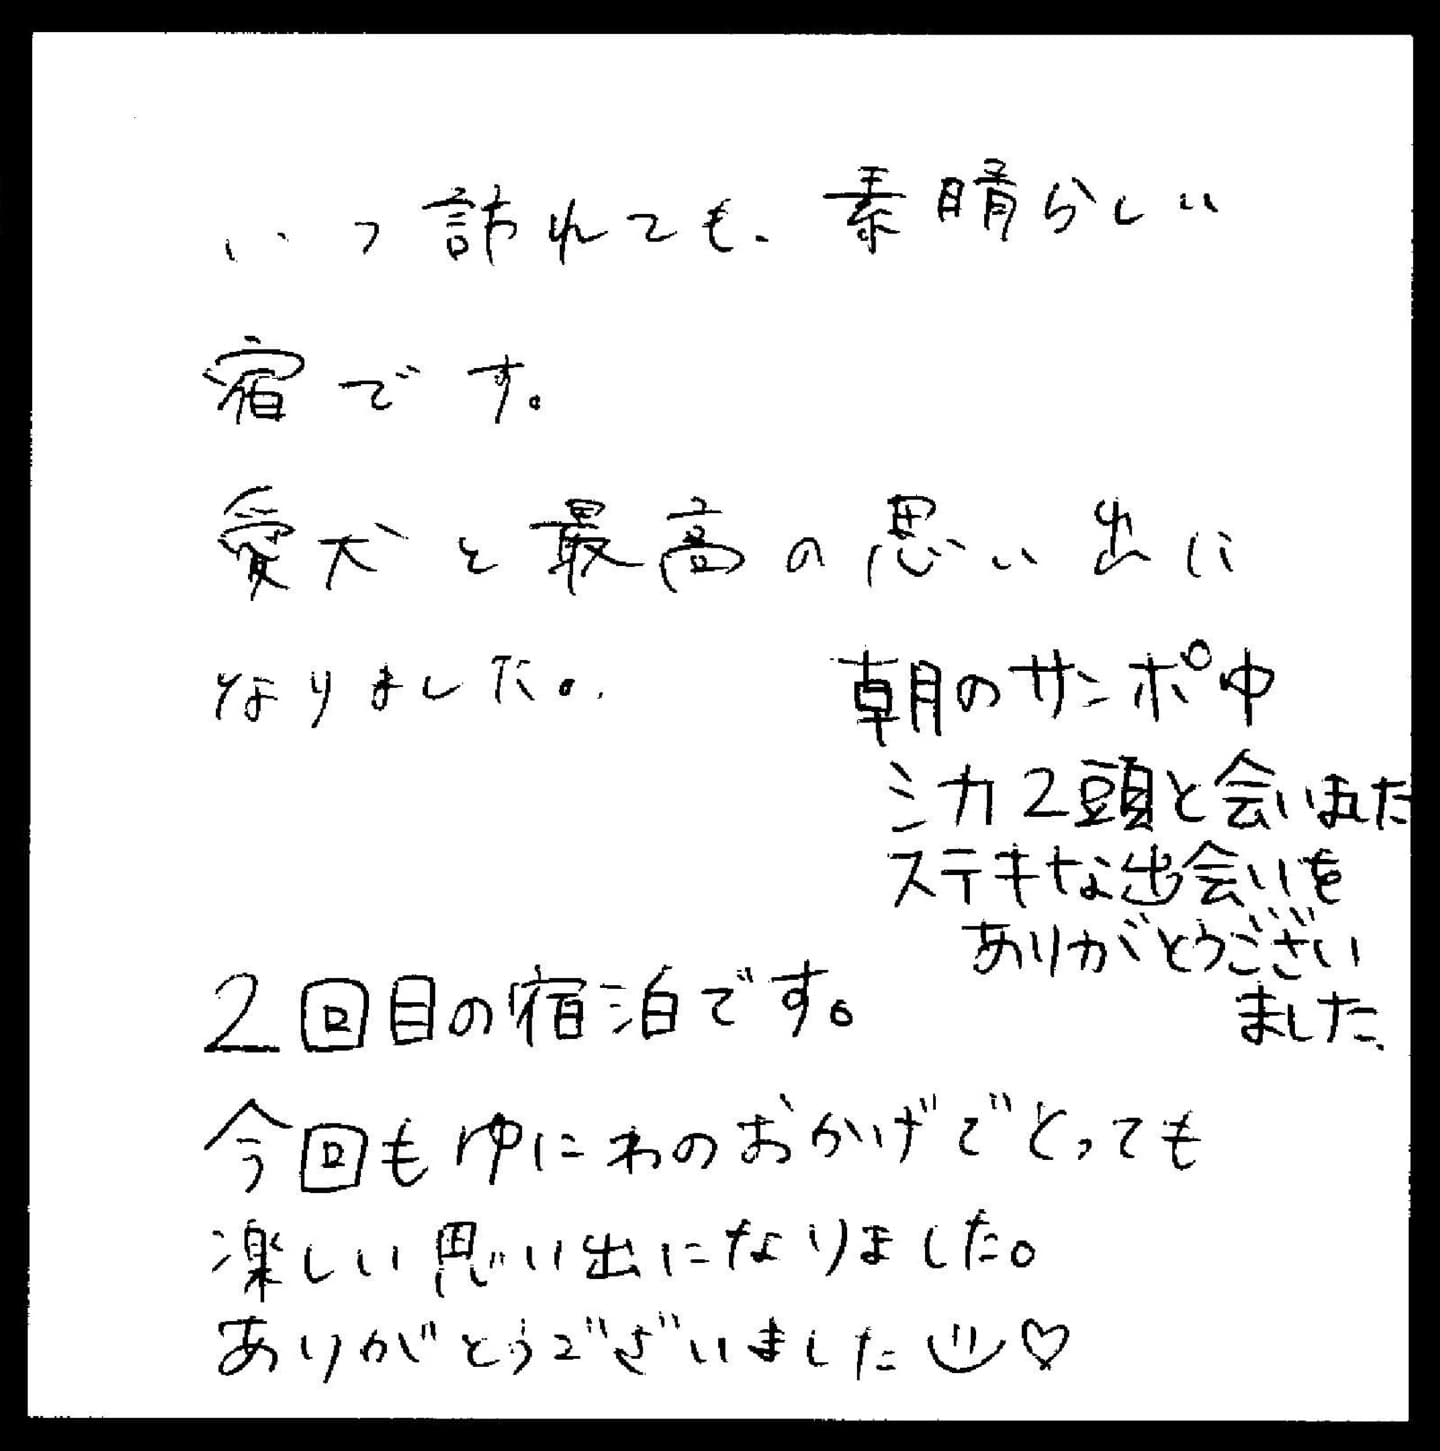 いつ訪れても、素晴らしい
宿です。
愛犬と最高の思い出に
なりました。
朝のサンポ中
シカ2頭と会いました
ステキな出会いを
ありがとうござい
ました、
2回目の宿泊です。
今回もゆにわのおかげでとっても
楽しい思い出になりました。
ありがとうございました♡